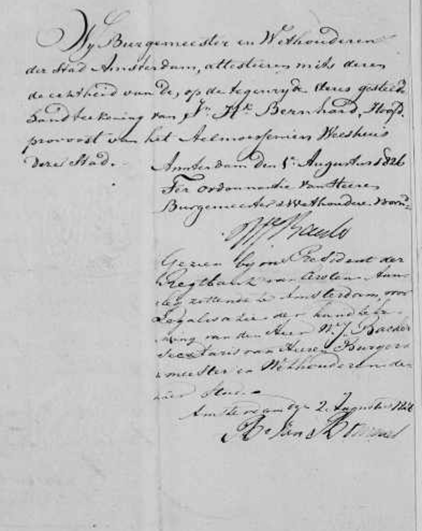 Wy Burgemeester en Wethouderen
der Stad Amsterdam, attesteeren mits deren
de echtheid van de, op de tegenzyde dezes gestelde
handteekening van Jn Hk Bernhard, Hoofd
provoost van het Aelmoesseniers Weeshuis
dezer Stad.
Amsterdam den 1n Augustus 1826
Ter ordonnantie van Heeren
Burgemeester & Wethoudere voornd
Gezien by ons President der
Regtbank van eersten Aan-
leg zittende te Amsterdam, voor
Legalisatie der handtee-
kening van den Heer W. J. Backer
Secretaris van Heeren Burge-
meester en Wethouderen de-
zer Stad.
Amsterdam 2. Augustus